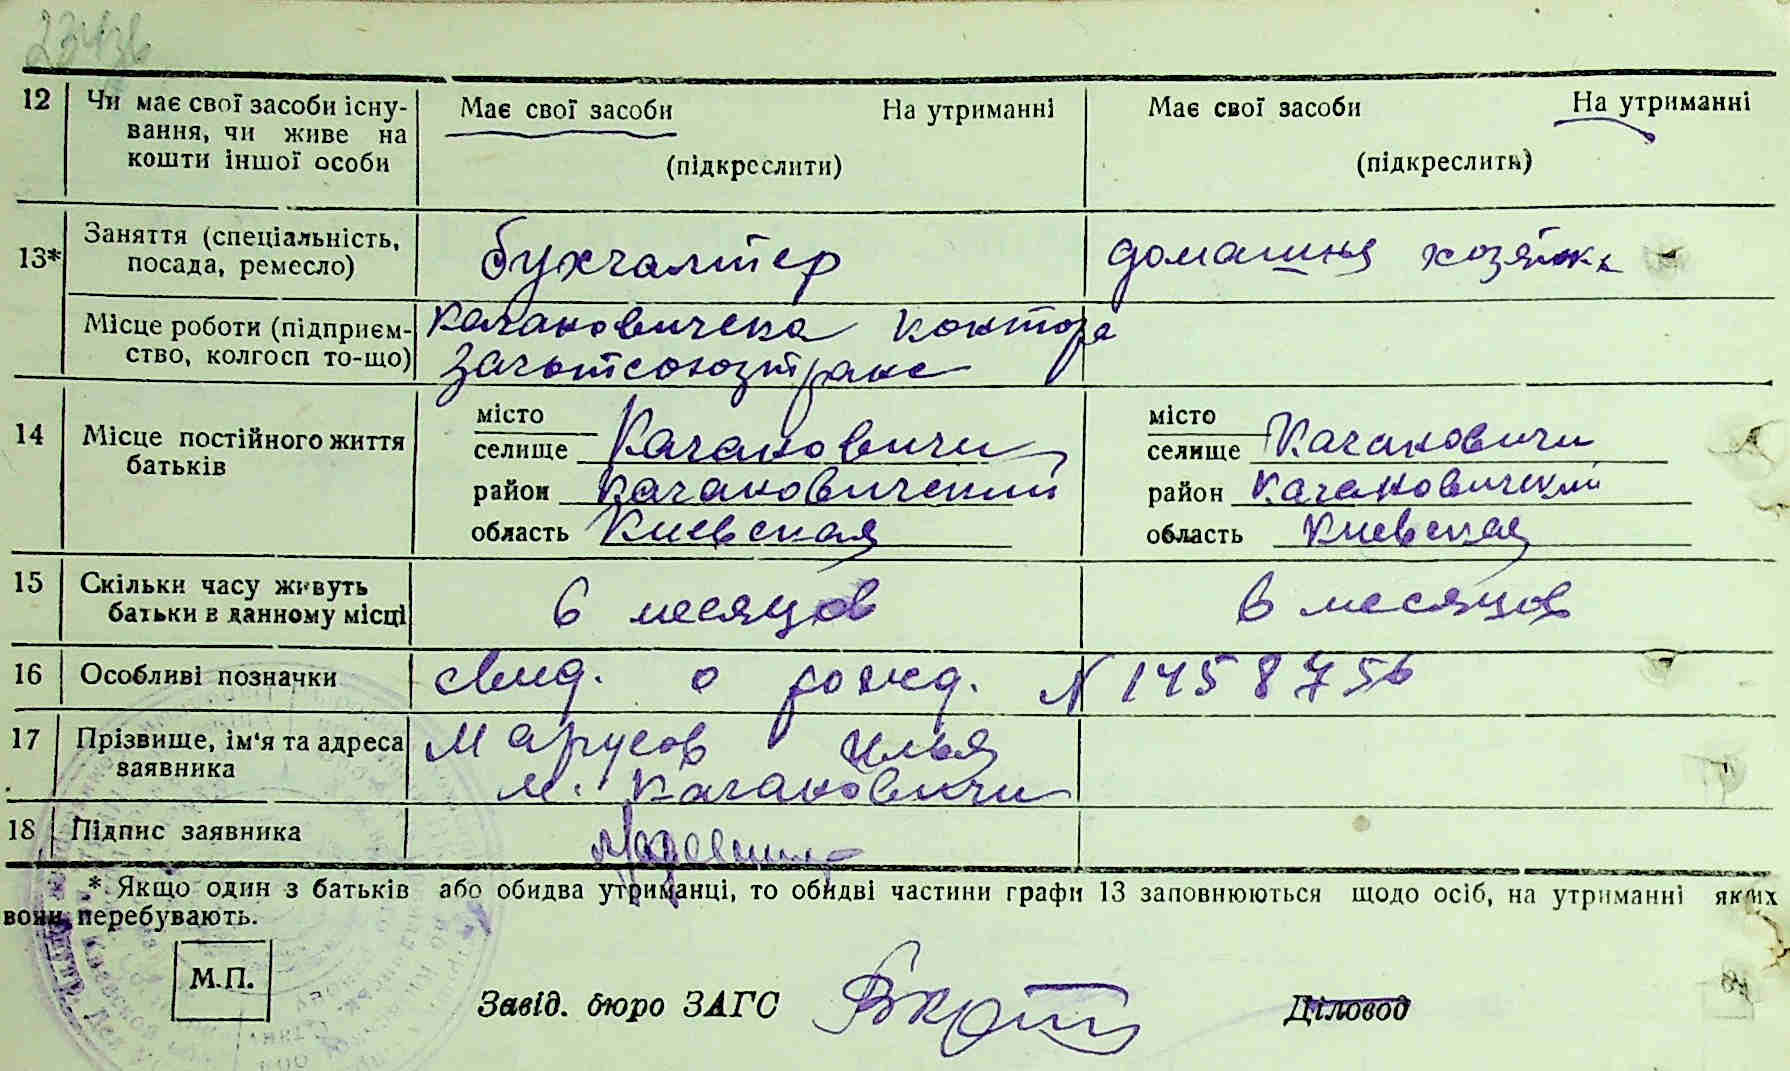 23436
12 Чи має свої засоби існу- Має свої засоби На утриманні Має свої засоби На утриманні
вання, чи живе на
кошти іншої особи (підкреслити) (підкреслить)
13* Заняття (спеціальність, бухгалтер домашня хозяйка
посада, ремесло)
Місце роботи (підприєм- Кагановичска контора
ство, колгосп то-що) Заготсоюзтранс
14 Місце постійного життя місто місто
батьків селище Кагановичи селище Кагановичи
район Кагановический район Кагановический
область Киевская область Киевская
15 Скільки часу живуть 6 месяцов 6 месяцов
батьки в данному місці
16 Особливі позначки свид. о рожд. N 1458756
17 Прізвище, ім'я та адреса Марусов Илья
заявника м. Кагановичи
18 Підпис заявника
* Якщо один з батьків або обидва утриманці, то обидві частини графи 13 заповнюються щодо осіб, на утриманні яких
вони перебувають.
М.П.
Завід. бюро ЗАГС Діловод